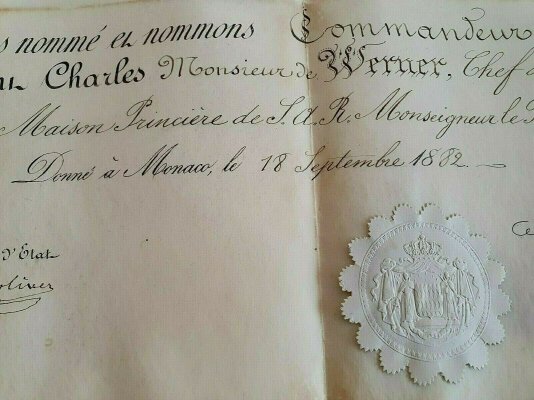 s nommé et nommons Commandeur
Charles Monsieur de Werner, Chef d
Maison Princière de S. A. R. Monseigneur le P
Donné à Monaco, le 18 Septembre 1882
d'Etat